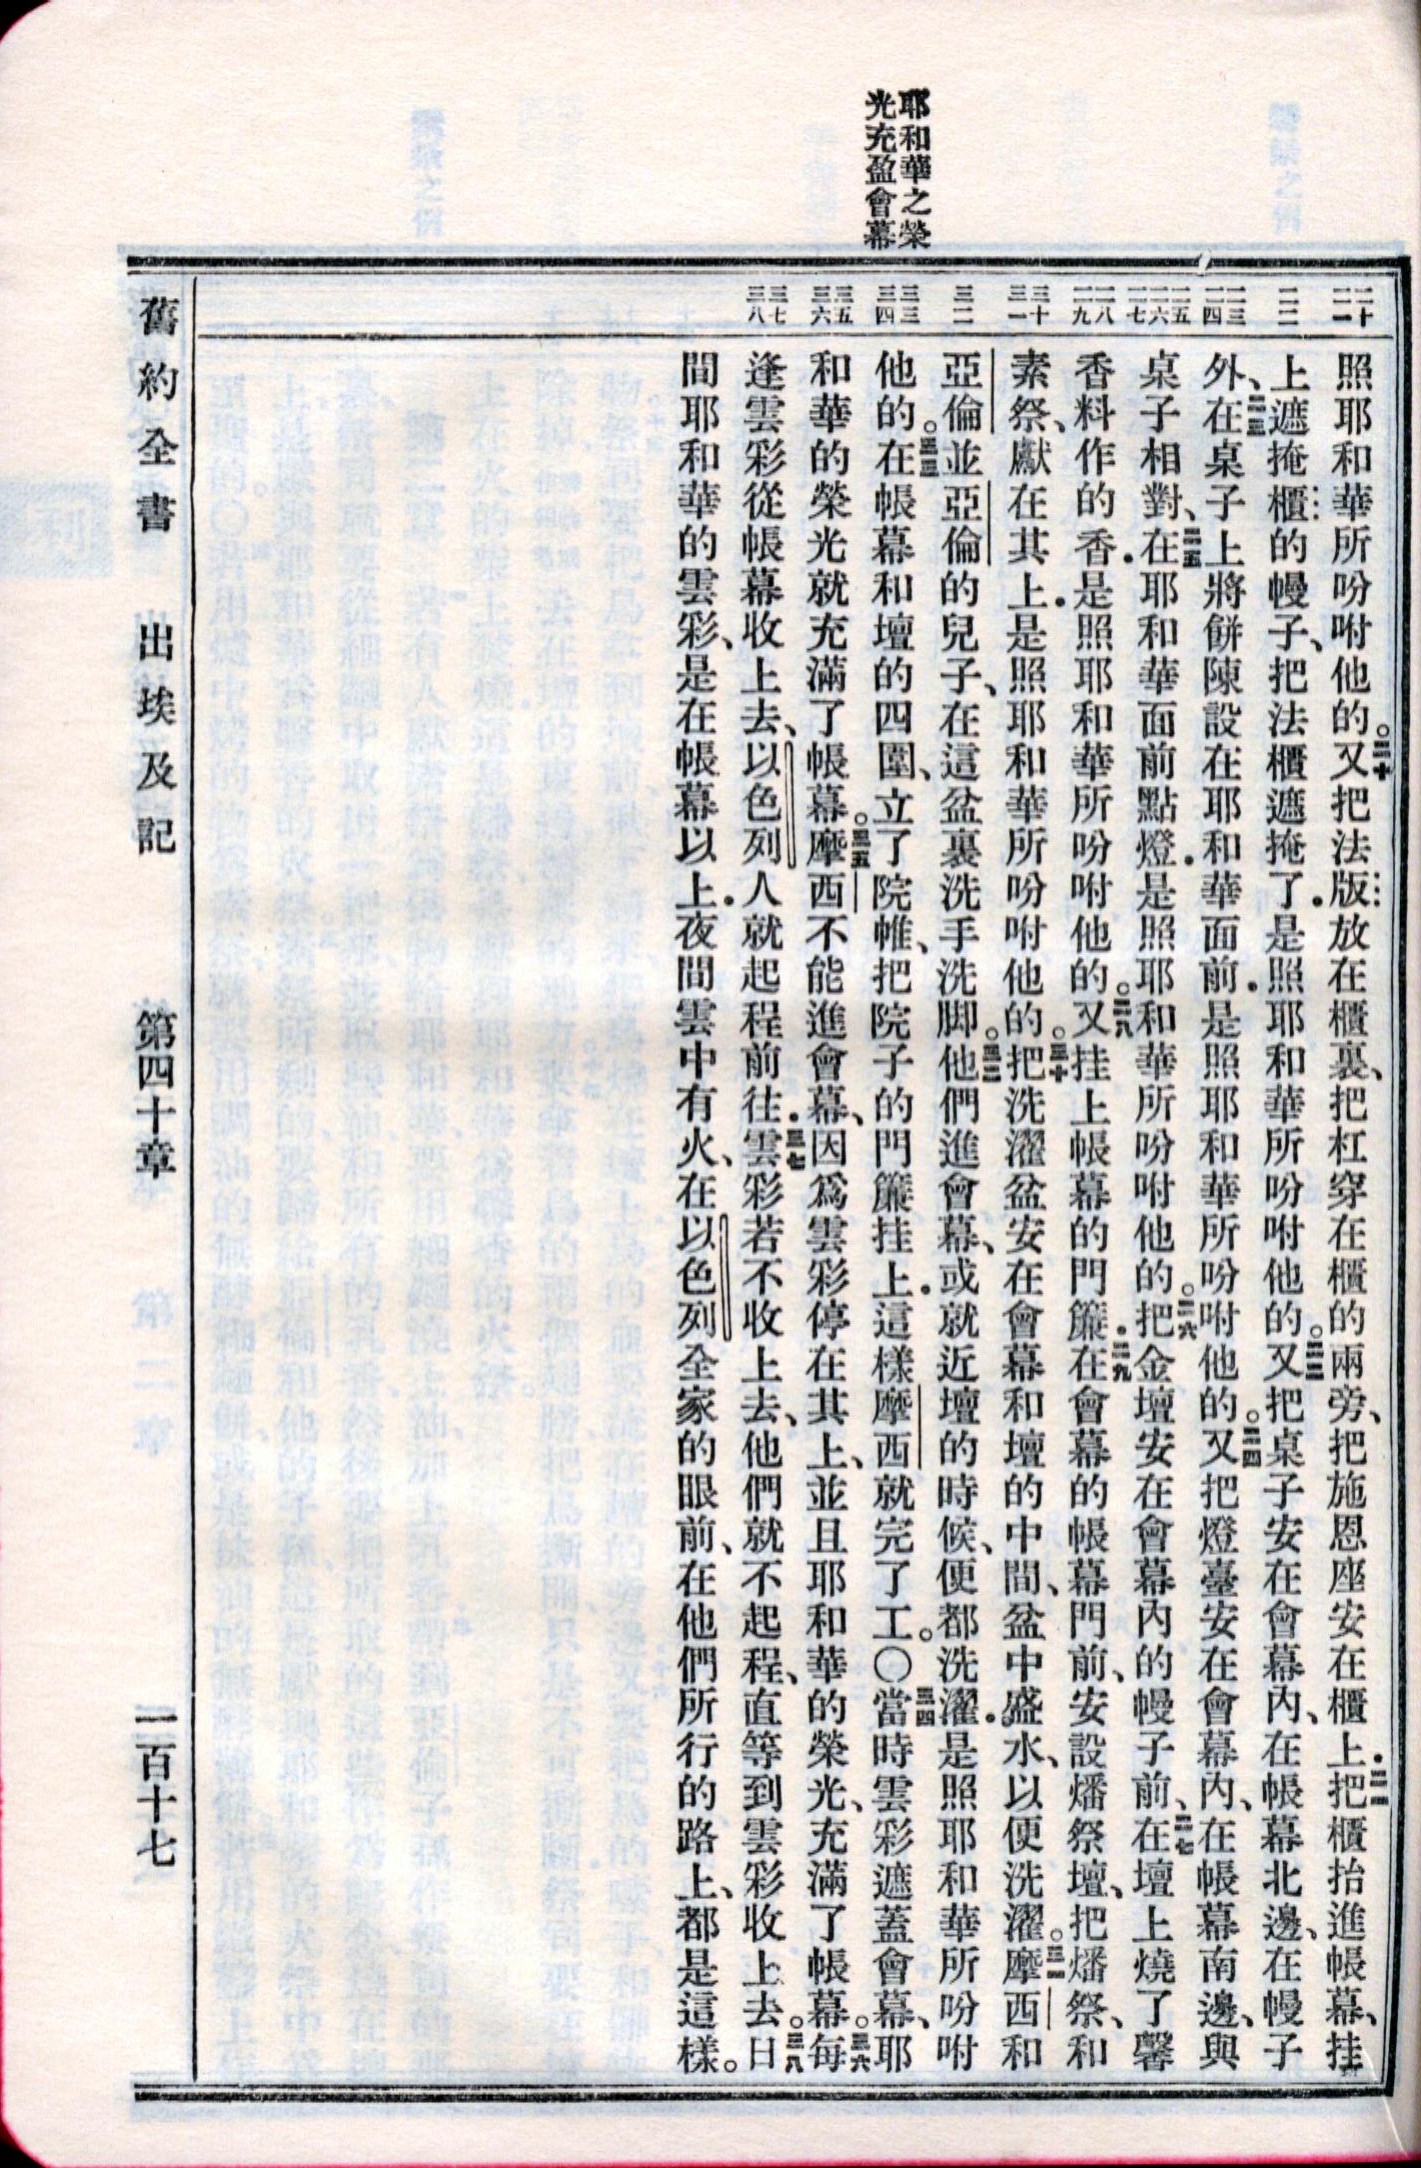 耶和華之榮
光充盈會幕
二十 二一
二二
二三 二四
二五 二六 二七
二八 二九
三十 三一
三二
三三 三四
三五 三六
三七 三八
照耶和華所吩咐他的。二十又把法版放在櫃裏、把杠穿在櫃的兩旁、把施恩座安在櫃上．二一把櫃抬進帳幕、挂
上遮掩櫃的幔子、把法櫃遮掩了．是照耶和華所吩咐他的。二二又把桌子安在會幕內、在帳幕北邊、在幔子
外、二三在桌子上將餅陳設在耶和華面前．是照耶和華所吩咐他的。二四又把燈臺安在會幕內、在帳幕南邊、與
桌子相對、二五在耶和華面前點燈．是照耶和華所吩咐他的。二六把金壇安在會幕內的幔子前、二七在壇上燒了馨
香料作的香．是照耶和華所吩咐他的。二八又挂上帳幕的門簾．二九在會幕的帳幕門前、安設燔祭壇、把燔祭、和
素祭、獻在其上．是照耶和華所吩咐他的。三十把洗濯盆安在會幕和壇的中間、盆中盛水、以便洗濯。三一摩西和
亞倫並亞倫的兒子、在這盆裏洗手洗脚。三二他們進會幕、或就近壇的時候、便都洗濯．是照耶和華所吩咐
他的。三三在帳幕和壇的四圍、立了院帷、把院子的門簾挂上．這樣摩西就完了工。〇三四當時雲彩遮蓋會幕、耶
和華的榮光就充滿了帳幕。三五摩西不能進會幕、因爲雲彩停在其上、並且耶和華的榮光、充滿了帳幕。三六每
逢雲彩從帳幕收上去、以色列人就起程前往．三七雲彩若不收上去、他們就不起程、直等到雲彩收上去。三八日
間耶和華的雲彩、是在帳幕以上．夜間雲中有火、在以色列全家的眼前、在他們所行的路上、都是這樣。
舊約全書　出埃及記　第四十章　一百十七